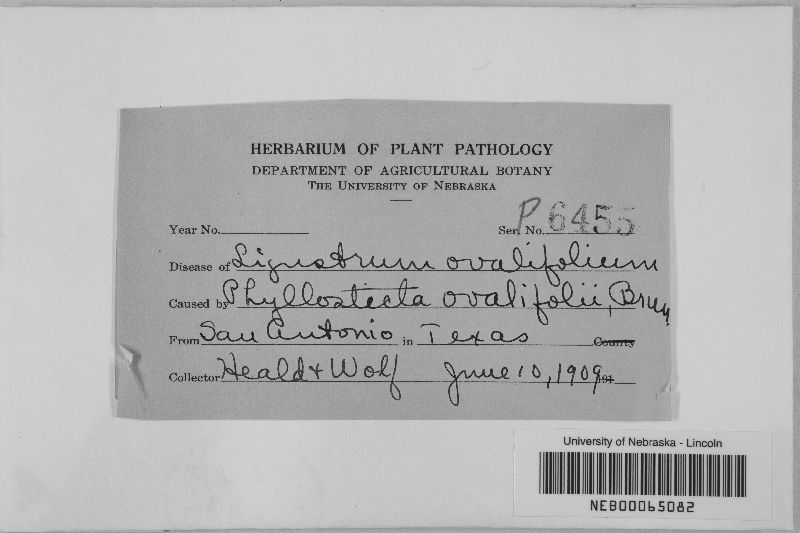 HERBARIUM OF PLANT PATHOLOGY
DEPARTMENT OF AGRICULTURAL BOTANY
THE UNIVERSITY OF NEBRASKA
Year No. Ser. No. P 6455
Disease of Ligustrum ovalifolium
Caused by Phyllosticta ovalifolii, Brun.
From San Antonio in Texas County
Collector Heald & Wolf June 10, 1909 191
University of Nebraska - Lincoln
NEB00065082